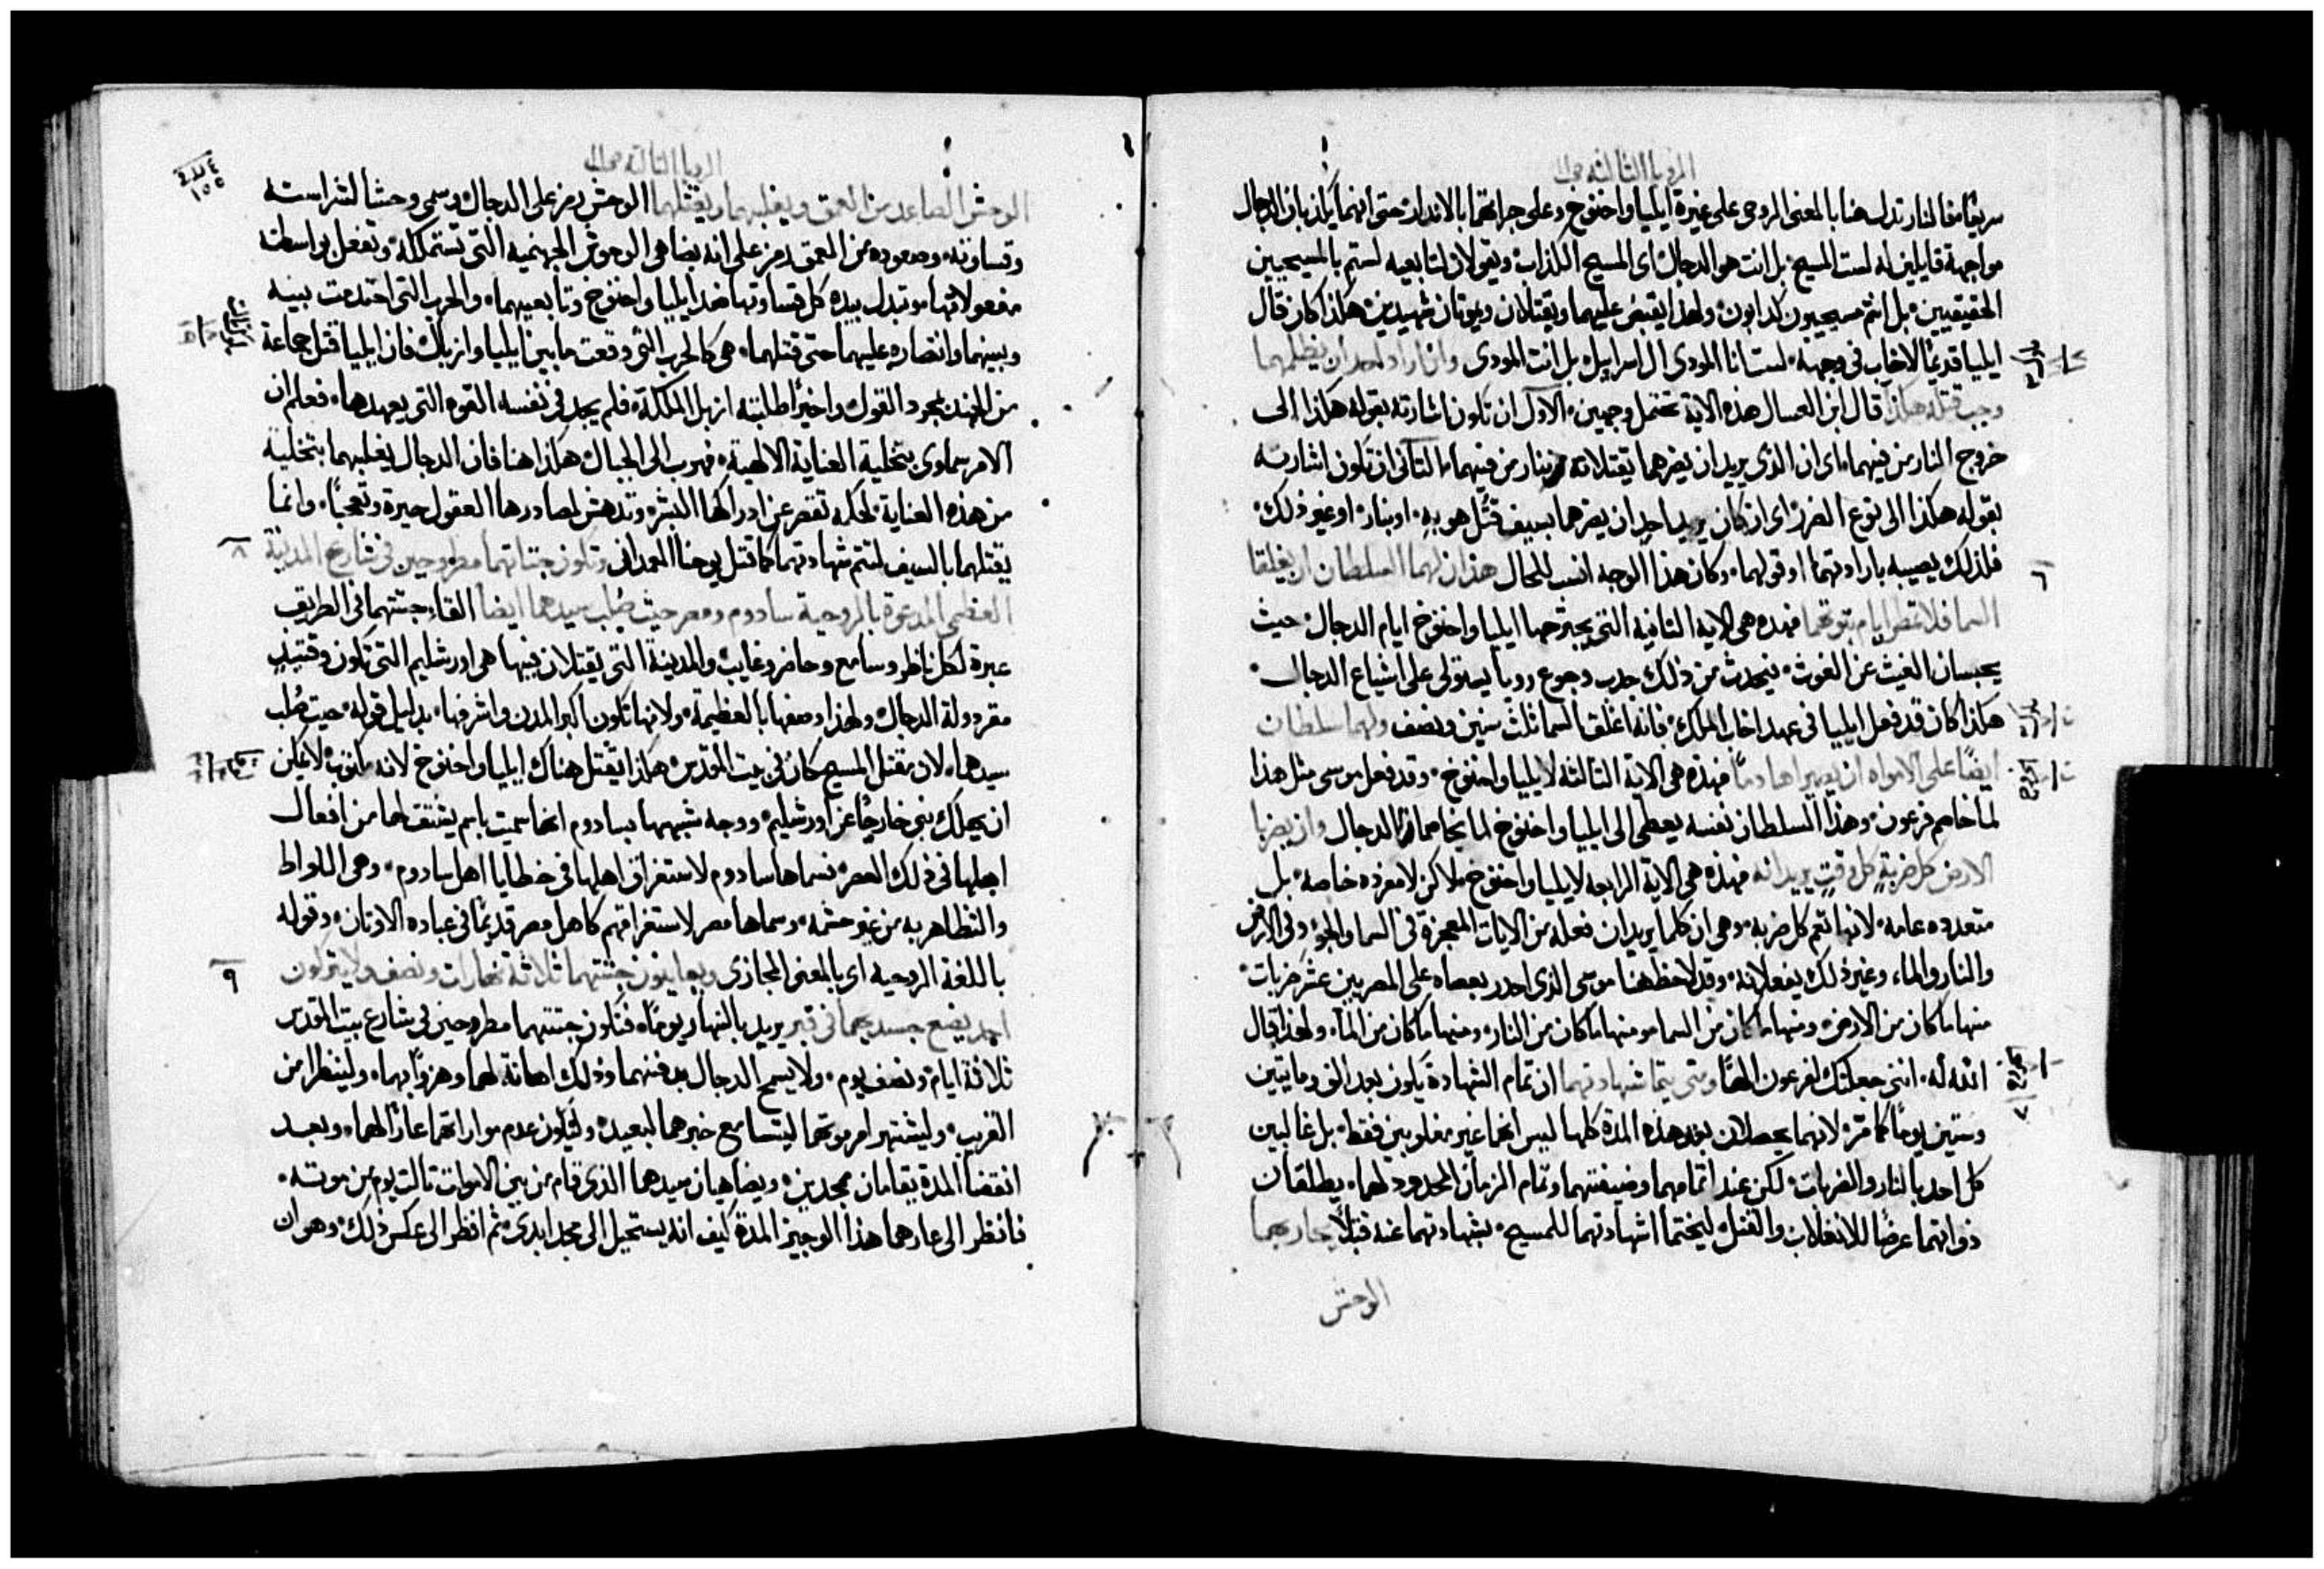 الرويا الثالثه
سريعًا فالنار تدل هنا بالمعنى الروحى على غيرة ايليا واخنوخ وعلى جراتهما بالانذار حتى انهما يكذبان الدجال
مواجهة قايلين له لست المسيح بل انت هو الدجال اى المسيح الكذاب ويقولان لتابعيه لستم بالمسيحيين
الحقيقيين بل انتم مسيحيون كذابون ولهذا يقبض عليهما ويقتلان ويموتان شهيدين هكذا كان قال
ايليا قديمًا لاخاب فى وجهه لست انا الموذى ال اسراييل بل انت الموذى وان اراد احد ان يظلمهما
وجب قتله هكذا قال ابن العسال هذه الاية تحتمل وجهين الاول ان تكون اشارته بقوله هكذا الى
خروج النار من فيهما اى ان الذى يريد ان يضرهما يقتلانه بنار من فيهما الثانى ان تكون اشارته
بقوله هكذا الى نوع الضرر اى ان كان يريد احد ان يضرهما بسيف قُتل هو به او بنار او غير ذلك
فلذلك يصيبه بارادتهما او قولهما وكان هذا الوجه انسب للحال هذان لهما السلطان ان يغلقا
٦
السما فلا تمطر ايام نبوتهما فهذه هى الاية الثانية التى يجترحها ايليا واخنوخ ايام الدجال حيث
يحبسان الغيث عن الغوث فيحدث من ذلك جدب وجوع ووبا يستولى على اشياع الدجال
هكذا كان قد فعل ايليا فى عهد اخاب الملك فانه اغلق السما ثلث سنين ونصف ولهما سلطان
ايضًا على الامواه ان يصيراها دمًا فهذه هى الاية الثالثة لايليا واخنوخ وقد فعل موسى مثل هذا
لما خاصم فرعون وهذا السلطان نفسه يعطى الى ايليا واخنوخ لما يخاصمان الدجال وان يضربا
الارض كل ضربةٍ كل وقتٍ يريدانه فهذه هى الاية الرابعه لايليا واخنوخ لاكن لا مفرده خاصه بل
متعدده عامه لانها تعم كل ضربه وهى ان كلما يريدان فعله من الايات المعجزة فى السما والجو وفى الارض
والنار والماء وغير ذلك يفعلانه وقد لاحظ هنا موسى الذى احدر بعصاه على المصريين عشر ضربات
منها ما كان من الارض ومنها ما كان من السما ومنها ما كان من النار ومنها ما كان من الماء ولهذا قال
الله له اننى جعلتك لفرعون الهًا ومتى يتما شهادتهما ان تمام الشهادة يكون بعد الف ومايتين
٧
وستين يومًا كما مرّ لانهما يحصلان بعد هذه المدة كلها ليس انهما غير مغلوبين فقط بل غالبين
كل احد بالنار والضربات لكن عند اتمامهما وضيفتهما وتمام الزمان المحدود لهما يطلقان
ذواتهما عرضًا للانغلاب والقتل ليختما شهادتهما للمسيح بشهادتهما عنه قتلًا يحاربهما
الوحش
الرويا الثالثه
١٥٥
الوحش الصاعد من العمق ويغلبهما ويقتلهما الوحش رمز على الدجال وسمى وحشًا لشراسته
وقساوته وصعوده من العمق رمز على انه يضاهى الوحوش الجهنميه التى تستملكه وتفعل بواسطته
مفعولاتها وتبدل بيده كل قساوتها ضد ايليا واخنوخ وتابعيهما والحرب التى احتدمت بينه
وبينهما وانتصاره عليهما حتى قتلهما هى كالحرب التى وقعت ما بين ايليا وازبال فان ايليا قتل جماعة
من الجند بمجرد القول واخيرًا طلبته ازبل الملكة فلم يجد فى نفسه القوه التى يعهدها فعلم ان
الامر سماوى بتخلية العناية الالهية فهرب الى الجبال هكذا هنا فان الدجال يغلبهما بتخلية
من هذه العناية لحكم تقصر عن ادراكها البشر وتدهش لمصادرها العقول حيرة وتعجبًا وانما
يقتلهما بالسيف لتتم شهادتهما كما قتل يوحنا المعمدان وتكون جثتاهما مطروحين فى شارع المدينة
٨
العظمى المدعوة بالروحية سادوم ومصر حيث صُلب سيدهما ايضا القاء جثتهما فى الطريق
عبرة لكل ناظر وسامع وحاضر وغايب والمدينة التى يقتلان فيها هى اورشليم التى تكون وقتيذٍ
مقر دولة الدجال ولهذا وصفها بالعظيمة ولانها تكون اكبر المدن واشرفها بدليل قوله حيث صُلب
سيدهما لان مقتل المسيح كان فى بيت المقدس هكذا يقتل هناك ايليا واخنوخ لانه مكتوب لا يمكن
ان يهلك نبى خارجًا عن اورشليم ووجه شبهها بسادوم انها سميت باسم يشتق لها من افعال
اهلها فى ذلك العصر فسماها سادوم لاستغراق اهلها فى خطايا اهل سادوم وهى اللواط
والتظاهر به من غير حشمه وسماها مصر لاستغراقهم كاهل مصر قديمًا فى عباده الاوثان وقوله
باللغة الروحيه اى بالمعنى المجازى ويعاينون جثتهما ثلاثة نهارات ونصف ولا يتركون
٩
احد يضع جسديهما فى قبر يريد بالنهار يومًا فتكون جثتهما مطروحين فى شارع بيت المقدس
ثلاثة ايام ونصف يوم ولا يسمح الدجال بدفنهما وذلك اهانة لهما وهزوًا بهما ولينظرا من
القريب وليشتهر امر موتهما ليتسامع خبرهما البعيد وليكون عدم مواراتهما عارًا لهما وبعد
انقضا المدة يقامان مجدين ويضاهيان سيدهما الذى قام من بين الاموات ثالث يوم من موته
فانظر الى عارهما هذا الوجيز المدة كيف انه يستحيل الى مجد ابدى ثم انظر الى عكس ذلك وهو ان